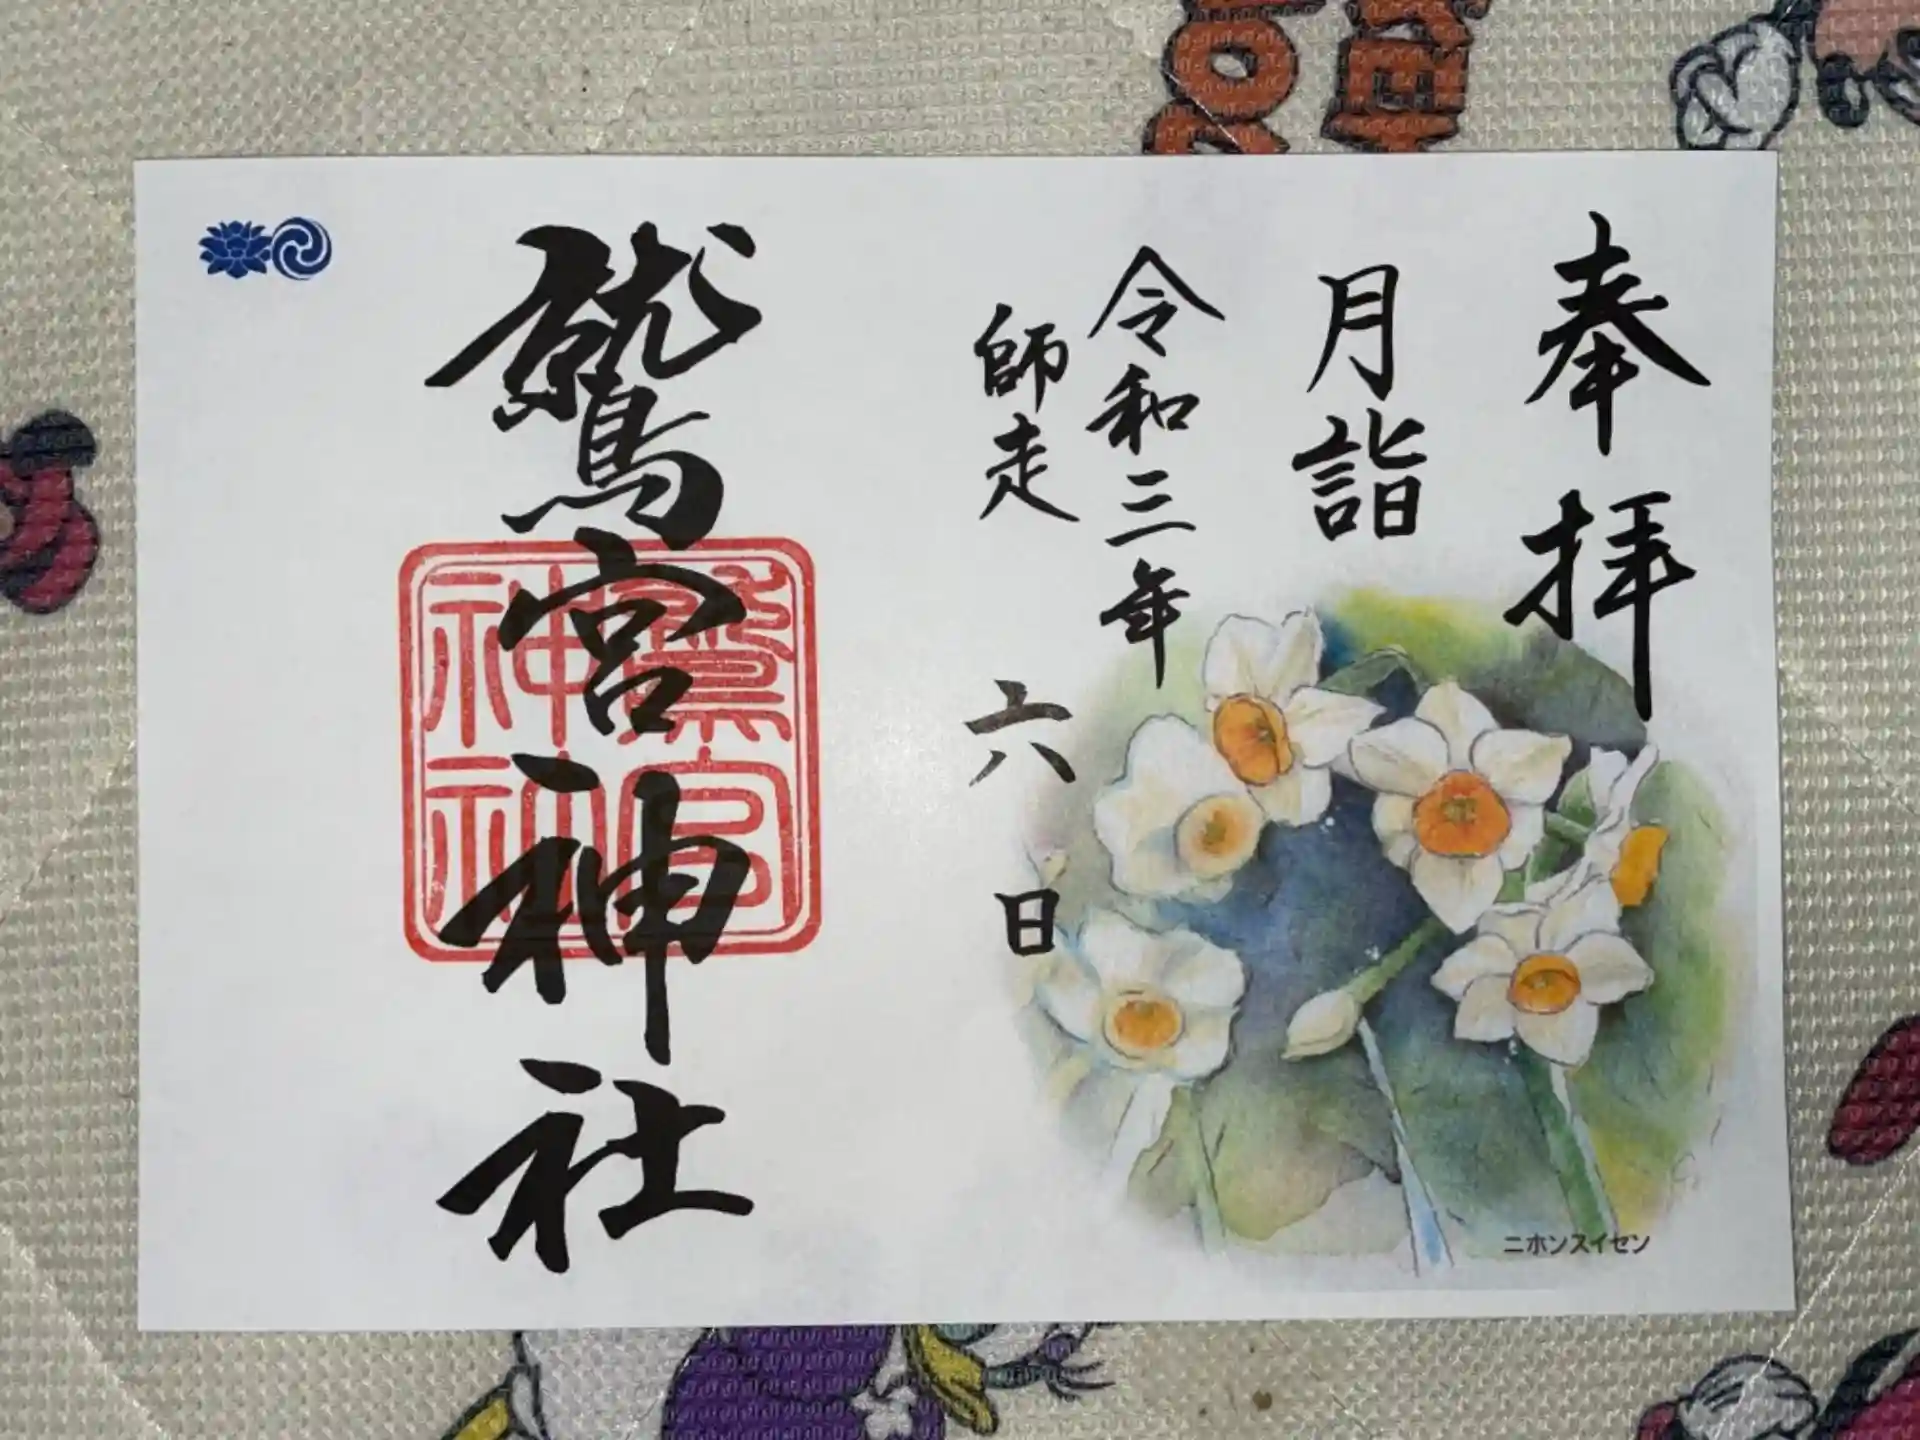 奉拝
月詣
令和三年
師走
六日
鷲宮神社
鷲宮
神社
ニホンスイセン